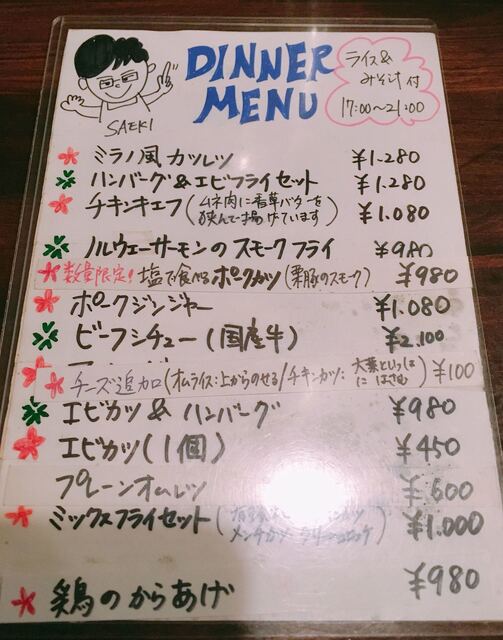 DINNER MENU
SAEKI
ライス&みそ汁付
17:00〜21:00
ミラノ風カツレツ ¥1.280
ハンバーグ&エビフライセット ¥1.280
チキンキエフ(ムネ肉に香草バターを挟んで揚げています) ¥1.080
ノルウェーサーモンのスモークフライ ¥980
数量限定!塩で食べるポークカツ(栗豚のスモーク) ¥980
ポークジンジャー ¥1.080
ビーフシチュー(国産牛) ¥2.100
チーズ追加(オムライス:上からのせる/チキンカツ:大葉といっしょにはさむ) ¥100
エビカツ&ハンバーグ ¥980
エビカツ(1個) ¥450
プレーンオムレツ ¥600
ミックスフライセット ¥1.000
メンチカツ
鶏のからあげ ¥980